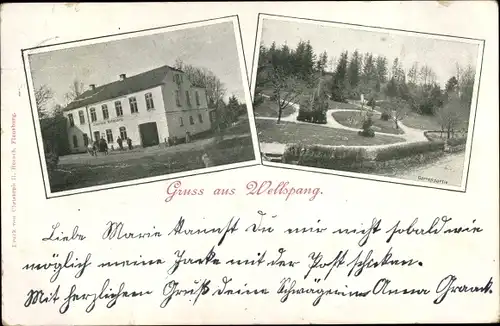 Gartenpartie
Gruss aus Wellspang.
Druck von Christoph H. Bosock, Flensburg.
Liebe Marie kannst Du mir nicht sobald wie
möglich meine Jacke mit der Post schicken.
Mit herzlichem Gruß deine Schwägerin Anna Graack.